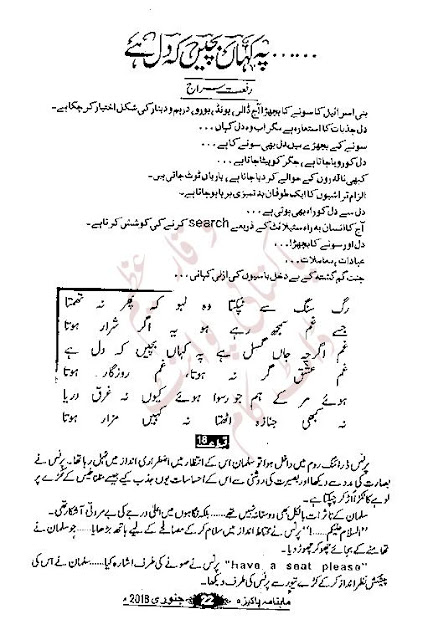 ...... پہ کہاں بچیں کہ دل ہے
رفعت سراج
بنی اسرائیل کا سونے کا بچھڑا آج ڈالر، پونڈ، یورو، درہم و دینار کی شکل اختیار کرچکا ہے۔
دل جذبات کا استعارہ ہے مگر اب وہ دل کہاں...
سونے کے بچھڑے میں دل بھی سونے کا ہے...
دل کو رویا جاتا ہے، جگر کو پیٹا جاتا ہے
کبھی ناقدروں کے حوالے کر دیا جاتا ہے، یاریاں ٹوٹ جاتی ہیں۔
الزام تراشیوں کا ایک طوفان بدتمیزی برپا ہوجاتا ہے۔
دل سے دل کو راہ بھی ہوتی ہے...
آج کا انسان یہ راہ سٹیلائٹ کے ذریعے search کرنے کی کوشش کرتا ہے۔
دل اور سونے کا بچھڑا!...
عبادات پہ معاملات...
جنت گم گشتہ کے بے دخل باسیوں کی ازلی کہانی...
رگ سنگ سے ٹپکتا وہ لہو کہ پھر نہ تھمتا
جسے غم سمجھ رہے ہو یہ اگر شرار ہوتا
غم اگرچہ جاں گسل ہے پہ کہاں بچیں کہ دل ہے
غم عشق گر نہ ہوتا، غم روزگار ہوتا
ہوئے مر کے ہم جو رسوا ہوئے کیوں نہ غرق دریا
نہ کبھی جنازہ اٹھتا نہ کہیں مزار ہوتا
18
پرنس ڈرائنگ روم میں داخل ہوا تو سلمان اس کے انتظار میں اضطراری انداز میں ٹہل رہا تھا۔ پرنس نے
بصارت کی مدد سے دیکھا اور بصیرت کی روشنی سے اس کے احساسات یوں جذب کیے جیسے مقناطیس کے پڑے
لوہے کا ٹکڑا اڑ کر چپکتا ہے۔
سلمان کے تاثرات بالکل بھی دوستانہ نہیں تھے...... بلکہ نگاہوں میں اعلیٰ درجے کی بے مروتی آشکار تھی۔
"السلام علیکم....!" پرنس نے محتاط انداز میں سلام کر کے مصافحے کے لیے ہاتھ بڑھایا..... جو سلمان نے
تھامنے کے بجائے چھو کر چھوڑ دیا۔
"have a seat please" پرنس نے صوفے کی طرف اشارہ کیا..... سلمان نے اس کی
پیشکش نظر انداز کر کے کڑے تیور سے پرنس کی طرف دیکھا۔
ماہنامہ پاکیزہ 22 جنوری 2018ء